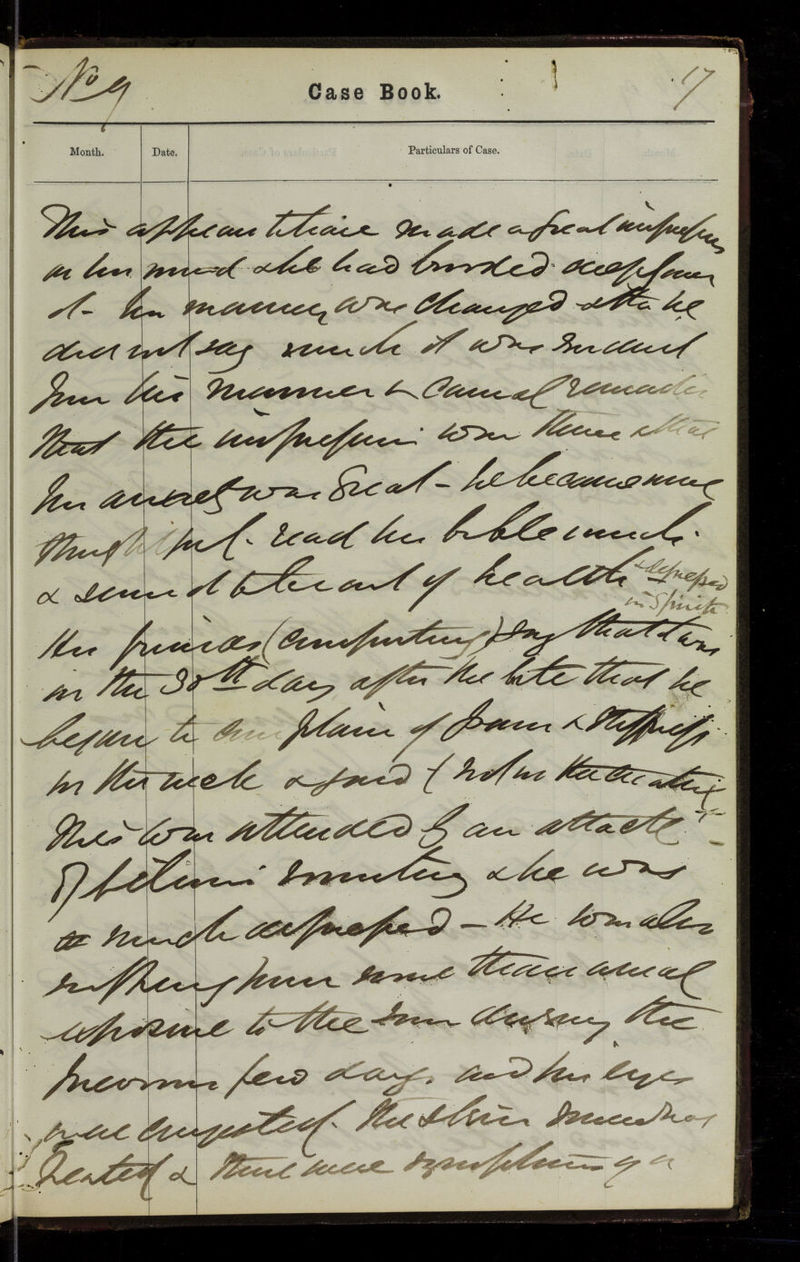 No 9
Case Book.
17
Month.
Date.
Particulars of Case.
This appears to have made a great impression
on his mind & he had brooded deeply over
it - his manner was changed & tho he
did not say much it was evident
from his manner & casual remarks
that the impression was there & that
his anxiety was great - he became more
thoughtful - read his bible much
& seemed to be out of health & depressed
in Spirits
His friends (computing) say that it was
on the 30th day after the bite that he
began to complain of pain & stiffness
in the neck & said not in the
This was attended by an attack
of bilious vomiting & he was
much depressed - He was also
suffering from some than usual
exposure to the sun during the
previous few days and his eyes
were congested. The skin somewhat
heated & there were symptoms of a